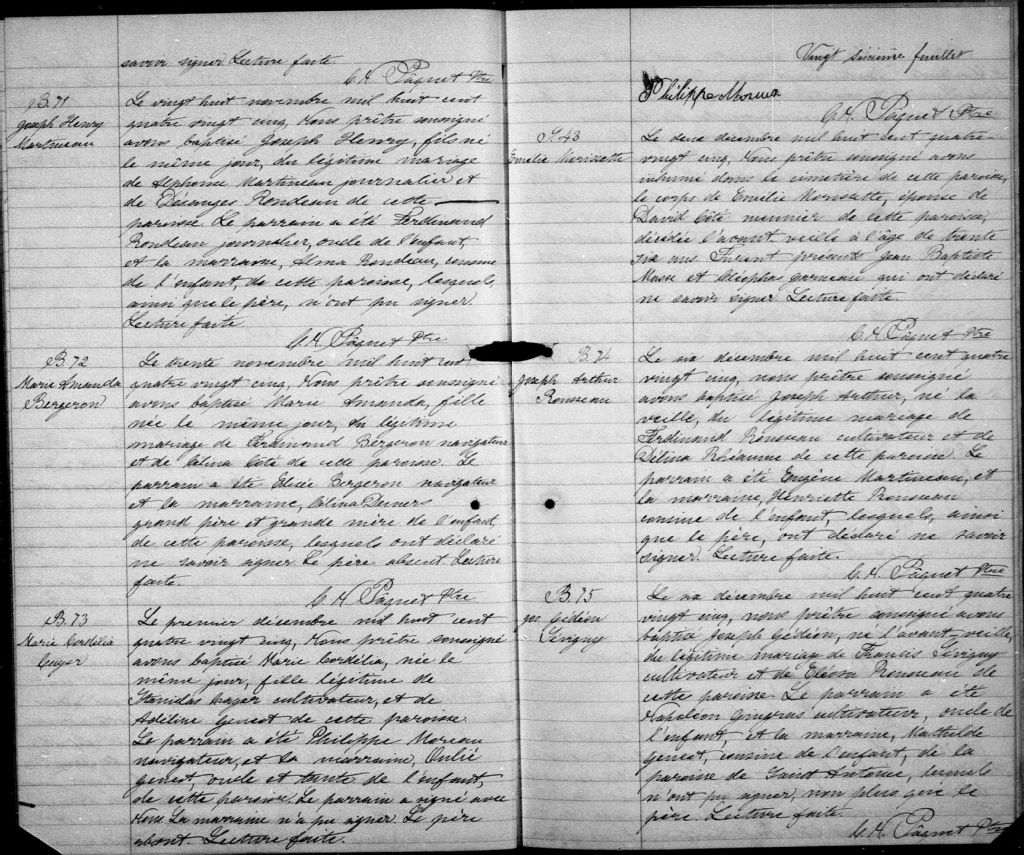 savoir signer Lecture faite
C. A. Pâquet Ptre
B.71
Joseph Henry
Martineau
Le vingt huit novembre mil huit cent
quatre vingt cinq, Nous prêtre soussigné
avons baptisé Joseph Henry, fils né
le même jour, du légitime mariage
de Alphonse Martineau journalier et
de Désanges Rondeau de cette
paroisse. Le parrain a été Ferdinand
Rondeau journalier, oncle de l'enfant,
et la marraine, Alma Rondeau, cousine
de l'enfant, de cette paroisse, lesquels,
ainsi que le père, n'ont pu signer.
Lecture faite.
C. A. Pâquet Ptre
B.72
Marie Amanda
Bergeron
Le trente novembre mil huit cent
quatre vingt cinq, Nous prêtre soussigné
avons baptisé Marie Amanda, fille
née le même jour, du légitime
mariage de Ferdinand Bergeron navigateur
et de Célina Côté de cette paroisse. Le
parrain a été Elisée Bergeron navigateur
et la marraine, Célina Demers
grand père et grande mère de l'enfant,
de cette paroisse, lesquels ont déclaré
ne savoir signer. Le père absent Lecture
faite.
C. A. Pâquet Ptre
B.73
Marie Cordélia
Le premier décembre mil huit cent
quatre vingt cinq, Nous prêtre soussigné
avons baptisé Marie Cordélia, née le
même jour, fille légitime de
Stanislas cultivateur, et de
Adéline Genest de cette paroisse.
Le parrain a été Philippe Moreau
navigateur, et la marraine,
genest, oncle et tante de l'enfant,
de cette paroisse. Le parrain a signé avec
Nous. La marraine n'a pu signer. Le père
absent. Lecture faite.
Vingt sixième feuillet
Philippe Moreau
C. A. Pâquet Ptre
S.43
Emélie Morissette
Le deux décembre mil huit cent quatre
vingt cinq, Nous prêtre soussigné avons
inhumé dans le cimetière de cette paroisse,
le corps de Emélie Morissette, épouse de
David Côté meunier de cette paroisse,
décédée l'avant veille à l'âge de trente
six ans Furent présents Jean Baptiste
Masse et Cléophas garneau qui ont déclaré
ne savoir signer. Lecture faite.
C. A. Pâquet Ptre
B.74
Joseph Arthur
Rousseau
Le six décembre mil huit cent quatre
vingt cinq, nous prêtre soussigné
avons baptisé Joseph Arthur, né la
veille, du légitime mariage de
Ferdinand Rousseau cultivateur et de
Délina Rhéaume de cette paroisse. Le
parrain a été Eugène Martineau, et
la marraine, Henriette Rousseau
cousine de l'enfant, lesquels, ainsi
que le père, ont déclaré ne savoir
signer. Lecture faite.
C. A. Pâquet Ptre
B.75
Jos. Gédéon
Sévigny
Le six décembre mil huit cent quatre
vingt cinq, nous prêtre soussigné avons
baptisé Joseph Gédéon, né l'avant-veille,
du légitime mariage de Francis Sévigny
cultivateur et de Rousseau de
cette paroisse. Le parrain a été
Napoléon Gingras cultivateur, oncle de
l'enfant, et la marraine, Mathilde
Genest, cousine de l'enfant, de la
paroisse de Saint Antoine, lesquels
n'ont pu signer, non plus que le
père. Lecture faite.
C. A. Pâquet Ptre